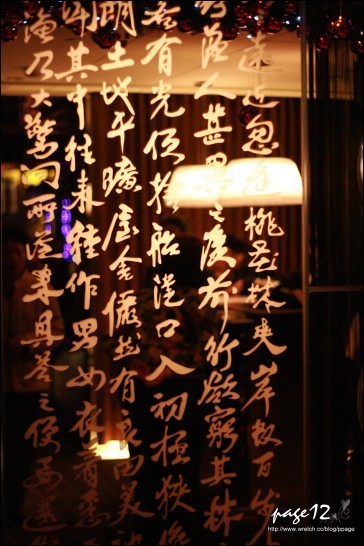 遠近忽逢桃花林夾岸數百步
漁人甚異之復前行欲窮其林
若有光便捨船從口入初極狹
明土地平曠屋舍儼然有良田美池
其中往來種作男女衣著悉
漁乃大驚問所從來具答之便要還
page12
http://www.wretch.cc/blog/ppage